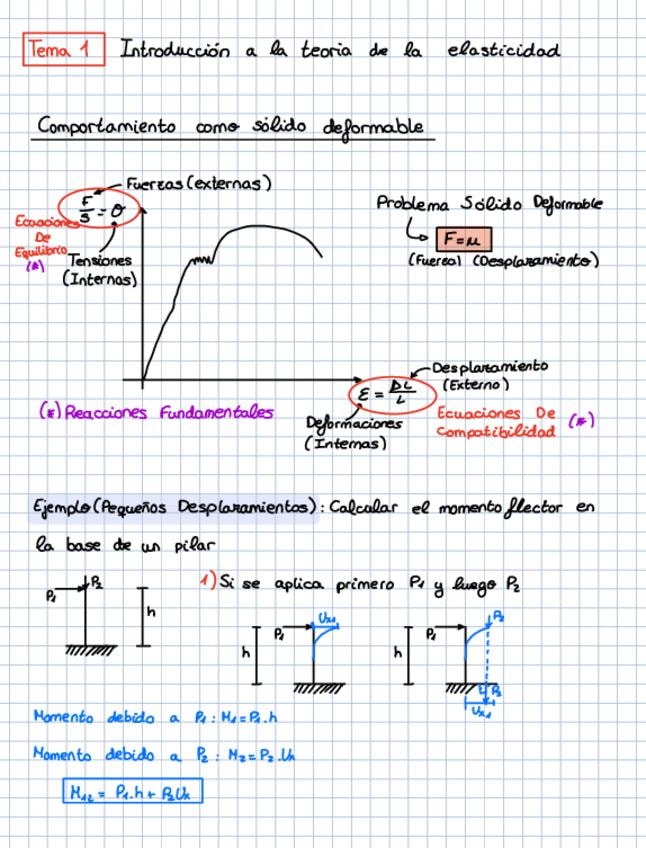 Tema 1 Introducción a la teoria de la elasticidad
Comportamiento como sólido deformable
Fuerzas (externas)
F/S = σ
Ecuaciones
De
Equilibrio
(*)
Tensiones
(Internas)
Problema Sólido Deformable
F=μ
(Fuerza) (Desplazamiento)
Desplazamiento
(Externo)
ε = ΔL/L
Deformaciones
(Internas)
Ecuaciones De
Compatibilidad (*)
(*) Reacciones Fundamentales
Ejemplo (Pequeños Desplazamientos): Calcular el momento flector en
la base de un pilar
P₁ P₂
h
1) Si se aplica primero P₁ y luego P₂
P₁ Ux₁
h
P₁ P₂
h
P₂
Ux₁
Momento debido a P₁ : M₁=P₁.h
Momento debido a P₂ : M₂=P₂.Ux
M₁₂ = P₁.h + P₂Ux